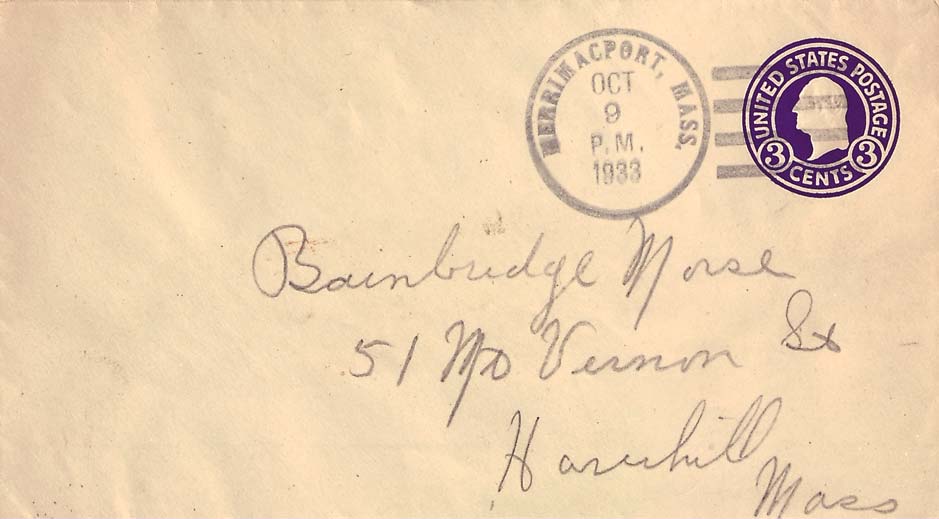 MERRIMACPORT, MASS.
OCT
9
P.M.
1933
UNITED STATES POSTAGE
3 CENTS 3
Bainbridge Morse
51 Mt Vernon St
Haverhill
Mass